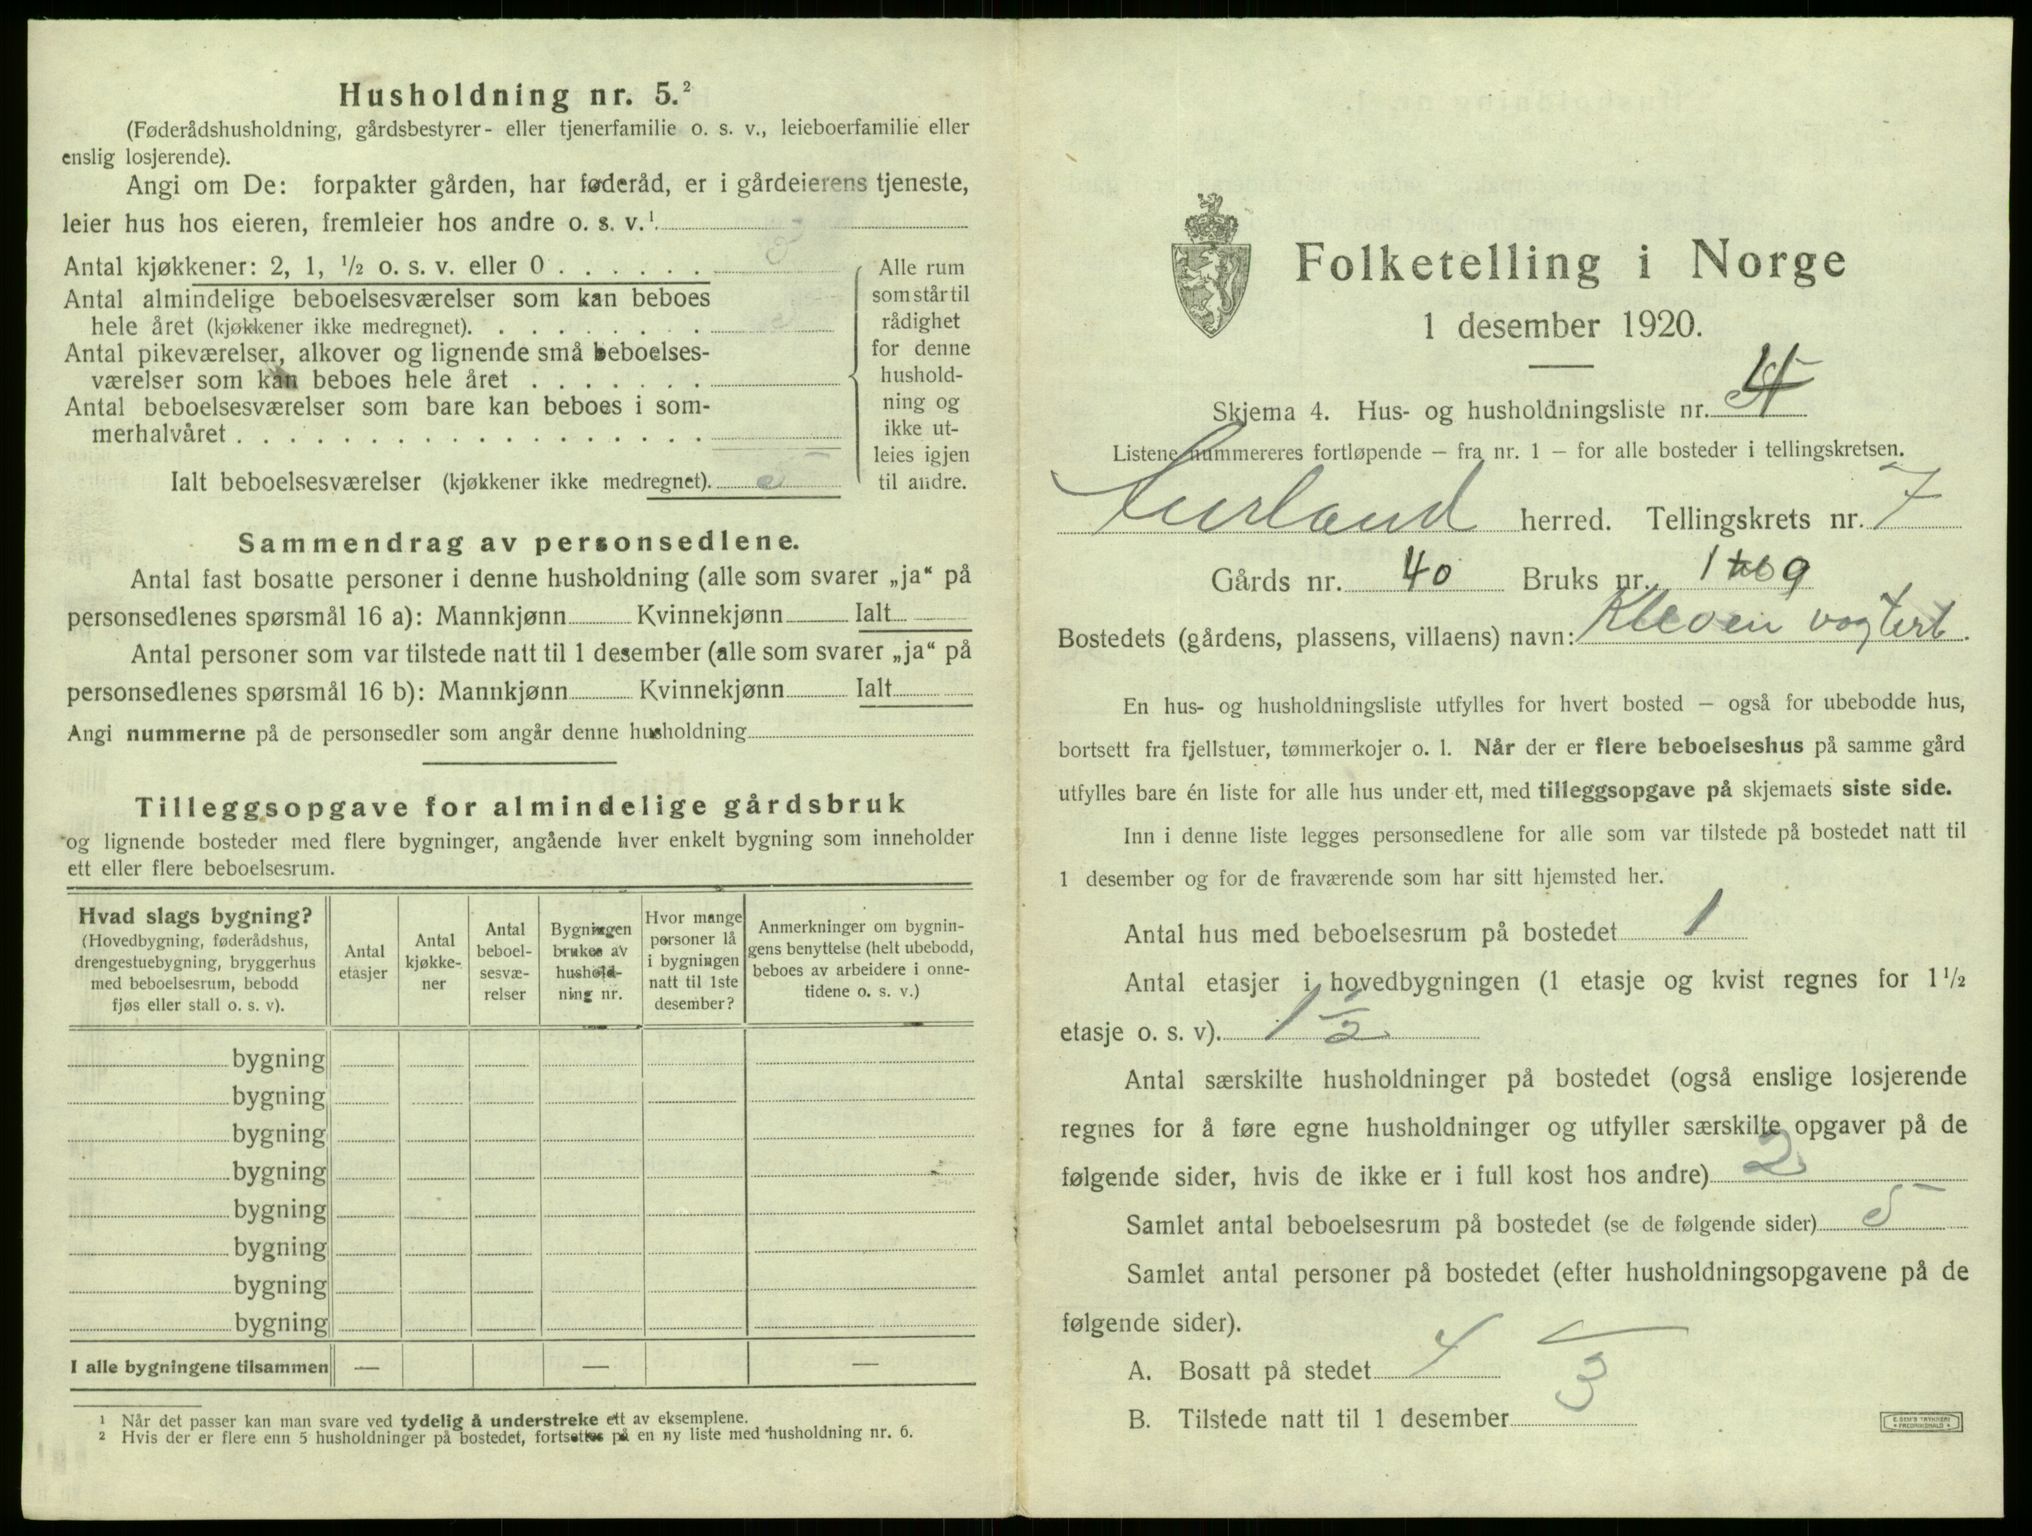 Husholdning nr. 5.²
(Føderådshusholdning, gårdsbestyrer- eller tjenerfamilie o. s. v., leieboerfamilie eller
enslig losjerende).
Angi om De: forpakter gården, har føderåd, er i gårdeierens tjeneste,
leier hus hos eieren, fremleier hos andre o. s. v.¹
Antal kjøkkener: 2, 1, ½ o. s. v. eller 0 . . . . . .
Antal almindelige beboelsesværelser som kan beboes
hele året (kjøkkener ikke medregnet). . . . . . . . .
Antal pikeværelser, alkover og lignende små beboelses-
værelser som kan beboes hele året . . . . . . .
Antal beboelsesværelser som bare kan beboes i som-
merhalvåret . . . . . . . . . . . . . . . . . .
Ialt beboelsesværelser (kjøkkener ikke medregnet).
Alle rum
som står til
rådighet
for denne
hushold-
ning og
ikke ut-
leies igjen
til andre.
Sammendrag av personsedlene.
Antal fast bosatte personer i denne husholdning (alle som svarer „ja“ på
personsedlenes spørsmål 16 a): Mannkjønn Kvinnekjønn Ialt
Antal personer som var tilstede natt til 1 desember (alle som svarer „ja“ på
personsedlenes spørsmål 16 b): Mannkjønn Kvinnekjønn Ialt
Angi nummerne på de personsedler som angår denne husholdning
Tilleggsopgave for almindelige gårdsbruk
og lignende bosteder med flere bygninger, angående hver enkelt bygning som inneholder
ett eller flere beboelsesrum.
Hvad slags bygning?
(Hovedbygning, føderådshus,
drengestuebygning, bryggerhus
med beboelsesrum, bebodd
fjøs eller stall o. s. v).
Antal
etasjer
Antal
kjøkke-
ner
Antal
beboel-
sesvæ-
relser
Bygningen
brukes av
hushold-
ning nr.
Hvor mange
personer lå
i bygningen
natt til 1ste
desember?
Anmerkninger om bygnin-
gens benyttelse (helt ubebodd,
beboes av arbeidere i onne-
tidene o. s. v.)
bygning
bygning
bygning
bygning
bygning
bygning
bygning
bygning
I alle bygningene tilsammen — — —
¹ Når det passer kan man svare ved tydelig å understreke ett av eksemplene.
² Hvis der er flere enn 5 husholdninger på bostedet, fortsettes på en ny liste med husholdning nr. 6.
Folketelling i Norge
1 desember 1920.
Skjema 4. Hus- og husholdningsliste nr.
Listene nummereres fortløpende – fra nr. 1 – for alle bosteder i tellingskretsen.
Aurland herred. Tellingskrets nr. 7
Gårds nr. 40 Bruks nr. 1 9
Bostedets (gårdens, plassens, villaens) navn: Kleven vogterb.
En hus- og husholdningsliste utfylles for hvert bosted – også for ubebodde hus,
bortsett fra fjellstuer, tømmerkojer o. l. Når der er flere beboelseshus på samme gård
utfylles bare én liste for alle hus under ett, med tilleggsopgave på skjemaets siste side.
Inn i denne liste legges personsedlene for alle som var tilstede på bostedet natt til
1 desember og for de fraværende som har sitt hjemsted her.
Antal hus med beboelsesrum på bostedet 1
Antal etasjer i hovedbygningen (1 etasje og kvist regnes for 1 ½
etasje o. s. v). 1 ½
Antal særskilte husholdninger på bostedet (også enslige losjerende
regnes for å føre egne husholdninger og utfyller særskilte opgaver på de
følgende sider, hvis de ikke er i full kost hos andre) 2
Samlet antal beboelsesrum på bostedet (se de følgende sider) 5
Samlet antal personer på bostedet (efter husholdningsopgavene på de
følgende sider).
A. Bosatt på stedet 4
B. Tilstede natt til 1 desember 3